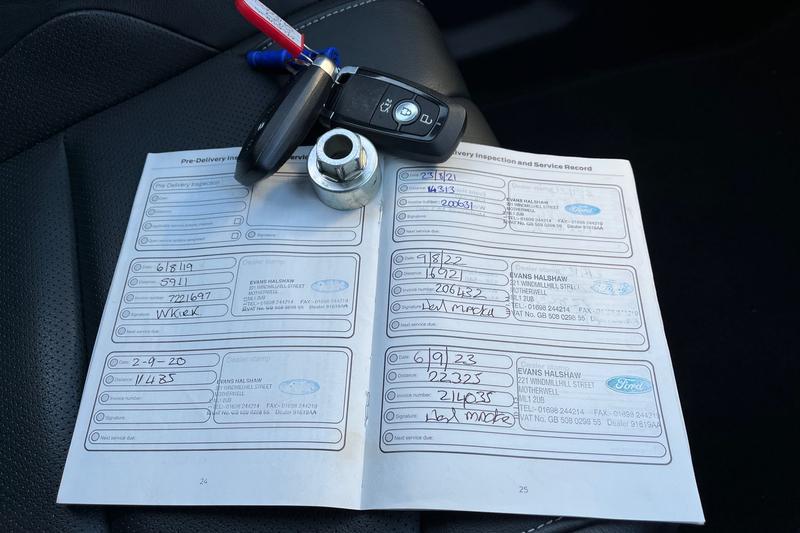 Pre-Delivery
Pre Delivery Inspection
Date:
Signature:
Date: 6/8/19
Distance: 5911
Invoice number: 7221697
Signature: WKirk
Next service due:
Dealer stamp
EVANS HALSHAW
221 WINDMILLHILL STREET
MOTHERWELL
ML1 2UB
TEL:- 01698 244214 FAX:- 01698
VAT No. GB 508 0298 55 Dealer 91619AA
Ford
Date: 2-9-20
Distance: 11435
Invoice number:
Signature:
Next service due:
Dealer stamp
EVANS HALSHAW
221 WINDMILLHILL STREET
MOTHERWELL
ML1 2UB
TEL:- 01698 244214 FAX:- 01698
VAT No. GB 508 0298 55 Dealer 91619AA
Ford
24
Delivery Inspection and Service Record
Date: 23/8/21
Distance: 14313
Invoice number: 200631
Signature:
Next service due:
EVANS HALSHAW
221 WINDMILLHILL STREET
MOTHERWELL
ML1 2UB
TEL:- 01698 244214 FAX:- 01698
VAT No. GB 508 0298 55 Dealer 91619AA
Ford
Date: 9/8/22
Distance: 16921
Invoice number: 206432
Signature:
Next service due:
EVANS HALSHAW
221 WINDMILLHILL STREET
MOTHERWELL
ML1 2UB
TEL:- 01698 244214 FAX:- 01698
VAT No. GB 508 0298 55 Dealer 91619AA
Ford
Date: 6/9/23
Distance: 22325
Invoice number: 214035
Signature:
Next service due:
Dealer stamp
EVANS HALSHAW
221 WINDMILLHILL STREET
MOTHERWELL
ML1 2UB
TEL:- 01698 244214 FAX:- 01698 244
VAT No. GB 508 0298 55 Dealer 91619AA
Ford
25